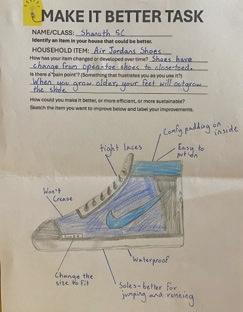 MAKE IT BETTER TASK
NAME/CLASS: Sharoth 5C
Identify an item in your house that could be better.
HOUSEHOLD ITEM: Air Jordans Shoes
How has your item changed or developed over time? Shoes have
change from open-toe shoes to close-toed.
Is there a "pain point"? (Something that frustrates you as you use it?)
When you grow older, your feet will outgrow
the shoe.
How could you make it better, or more efficient, or more sustainable?
Sketch the item you want to improve below and label your improvements.
Comfy padding on
inside
tight laces
Easy to
put on
Won't
Crease
Waterproof
Change the
size to fit
Soles-better for
jumping and running